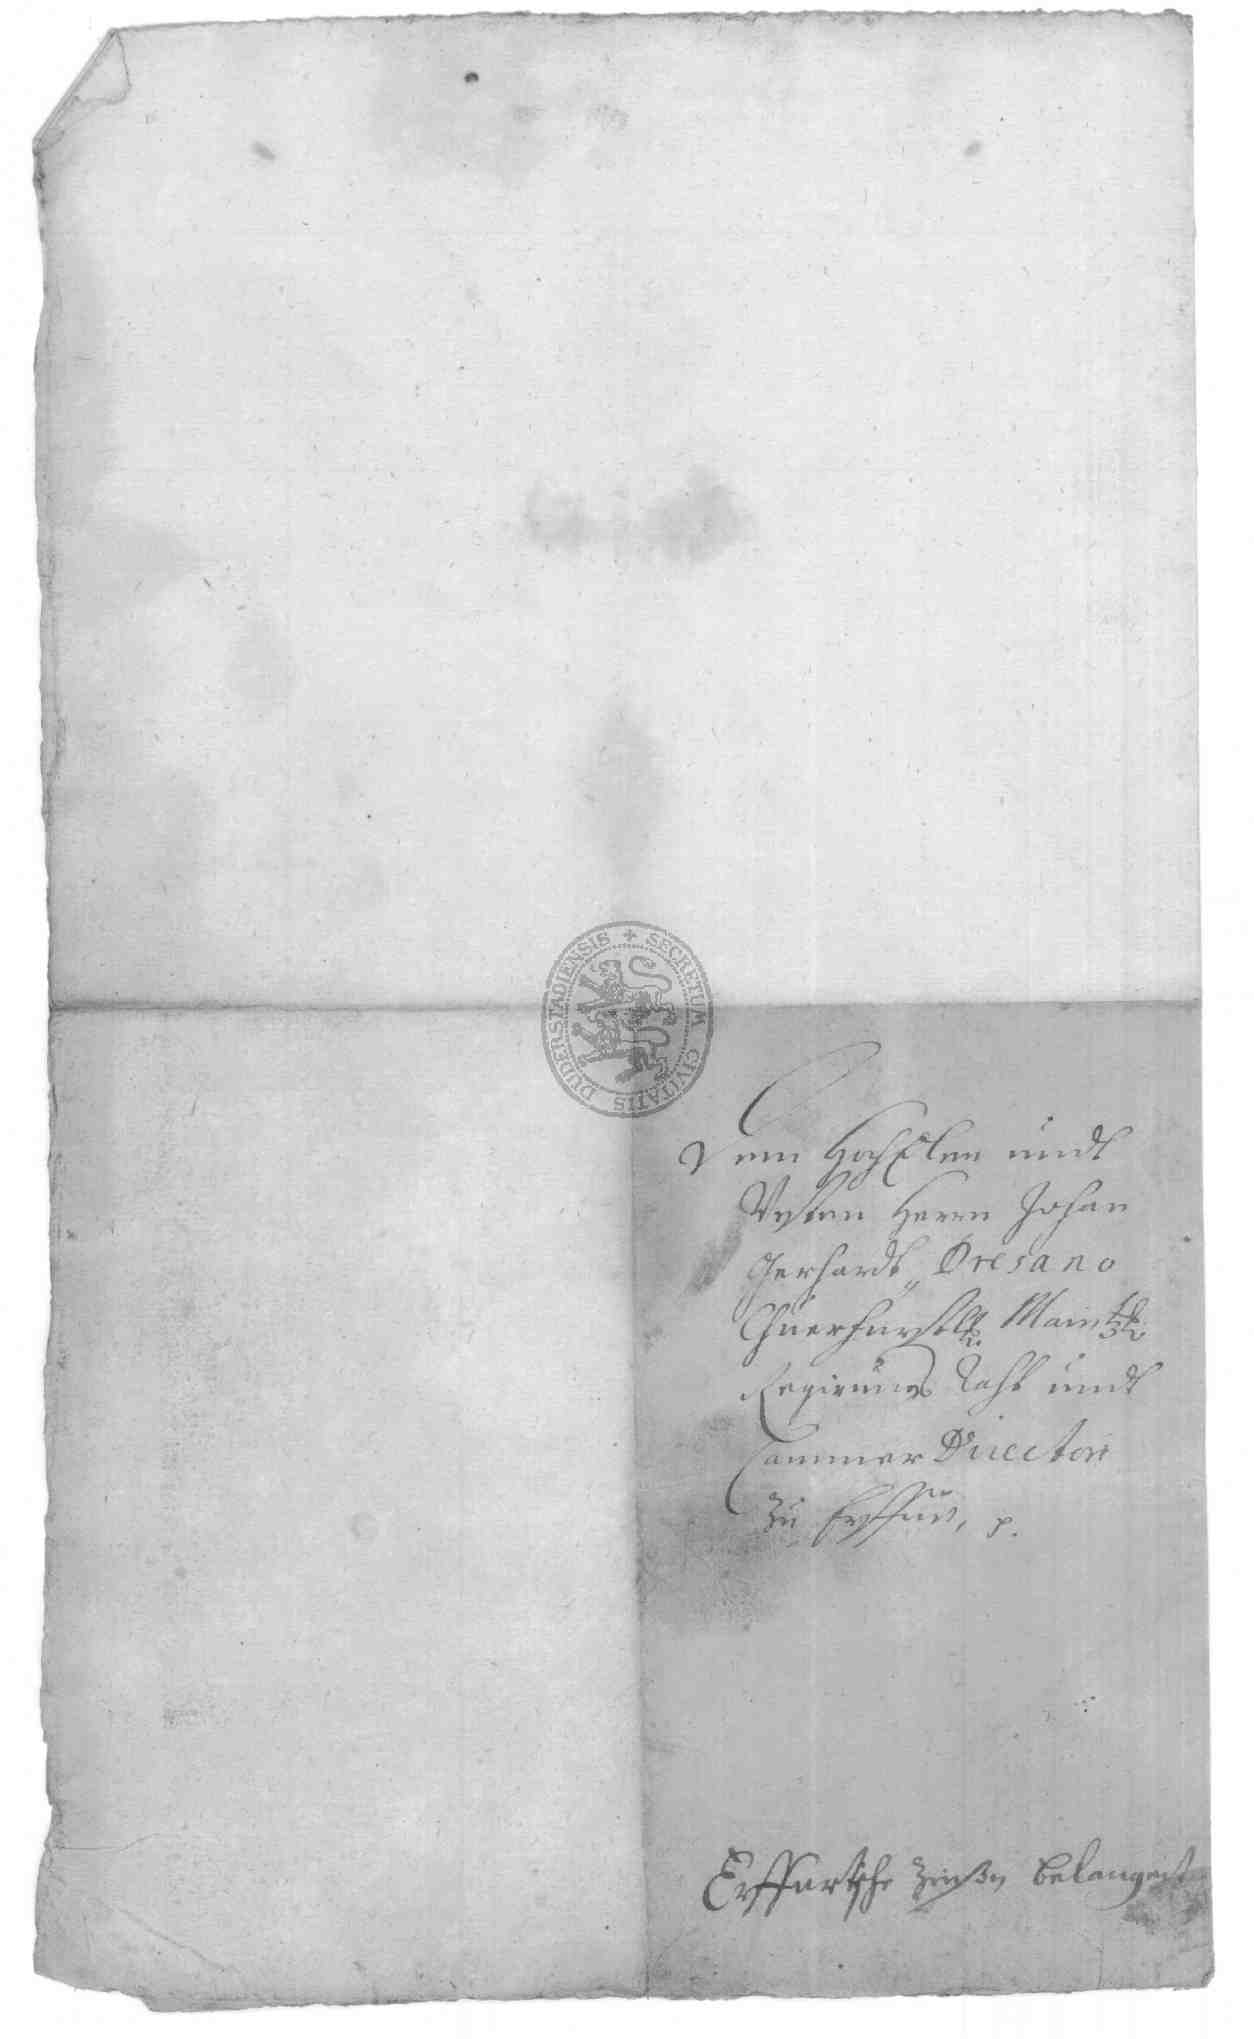 SECRETUM CIVITATIS DUDERSTADIENSIS
Dem HochEdlen undt
Vesten Herrn Johan
Gerhardt Dresano
Chuerfürstl. Maintz.
Regirungs Raht undt
Cammer Directori
zu Erffurt, p.
Erffurtsche Zinßen belangent